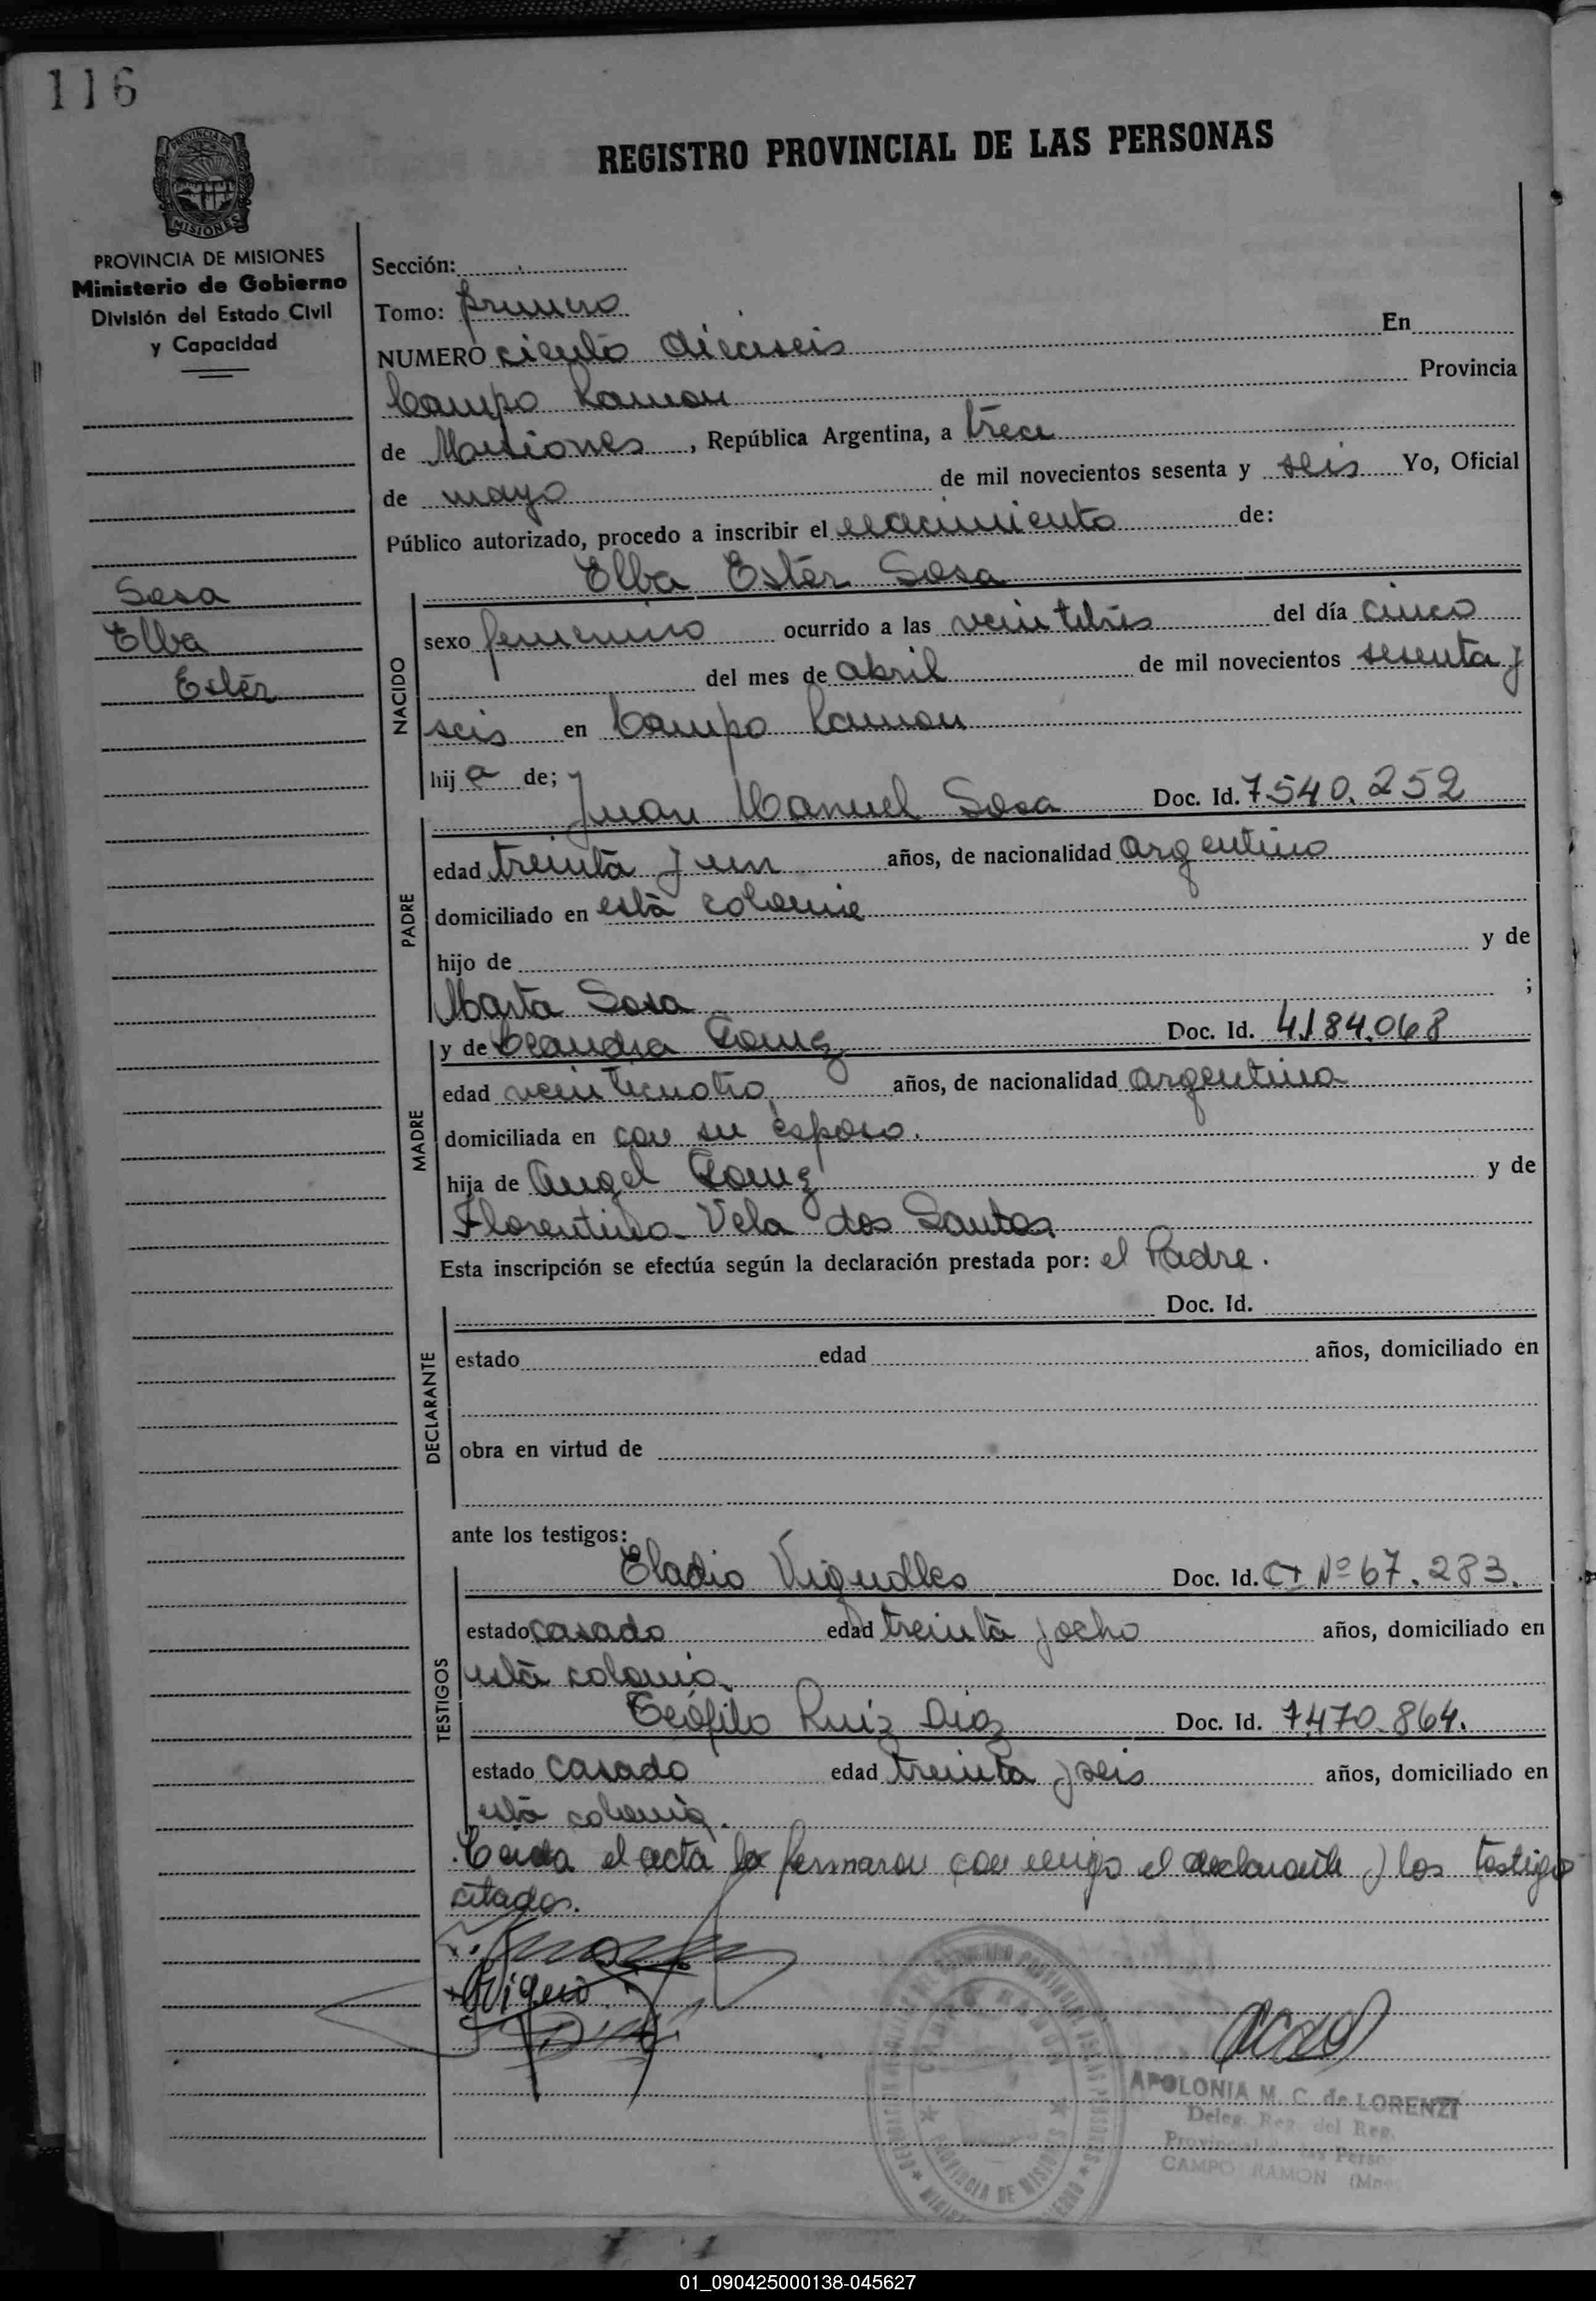 116
PROVINCIA DE
MISIONES
REGISTRO PROVINCIAL DE LAS PERSONAS
PROVINCIA DE MISIONES
Ministerio de Gobierno
División del Estado Civil
y Capacidad
Sosa
Elba
Estér
Sección:
Tomo: primero
NUMERO ciento dieciseis En
Campo Ramon Provincia
de Misiones, República Argentina, a trece
de mayo de mil novecientos sesenta y seis Yo, Oficial
Público autorizado, procedo a inscribir el nacimiento de:
Elba Estér Sosa
NACIDO
sexo femenino ocurrido a las veintitrés del día cinco
del mes de abril de mil novecientos sesenta y
seis en Campo Ramon
hija de;
Juan Manuel Sosa Doc. Id. 7.540.252
PADRE
edad treinta y un años, de nacionalidad argentino
domiciliado en esta colonia
hijo de y de
Marta Sosa ;
y de Claudia Gomez Doc. Id. 4.184.068
MADRE
edad veinticuatro años, de nacionalidad argentina
domiciliada en con su esposo.
hija de Angel Gomez y de
Florentina Vela dos Santos
Esta inscripción se efectúa según la declaración prestada por: el Padre.
Doc. Id.
DECLARANTE
estado edad años, domiciliado en
obra en virtud de
ante los testigos:
Eladio Doc. Id. CI Nº 67.283.
TESTIGOS
estado casado edad treinta y ocho años, domiciliado en
esta colonia.
Teófilo Ruiz Diaz Doc. Id. 7.470.864.
estado casado edad treinta y seis años, domiciliado en
esta colonia.
Leida el acta la firmaron con migo el declarante y los testigos
citados.
APOLONIA M. C. de LORENZI
Deleg. Reg. del Reg.
Provincial de las Perso
CAMPO RAMON (Mnes
PROVINCIA DE MISIONES
01_090425000138-045627